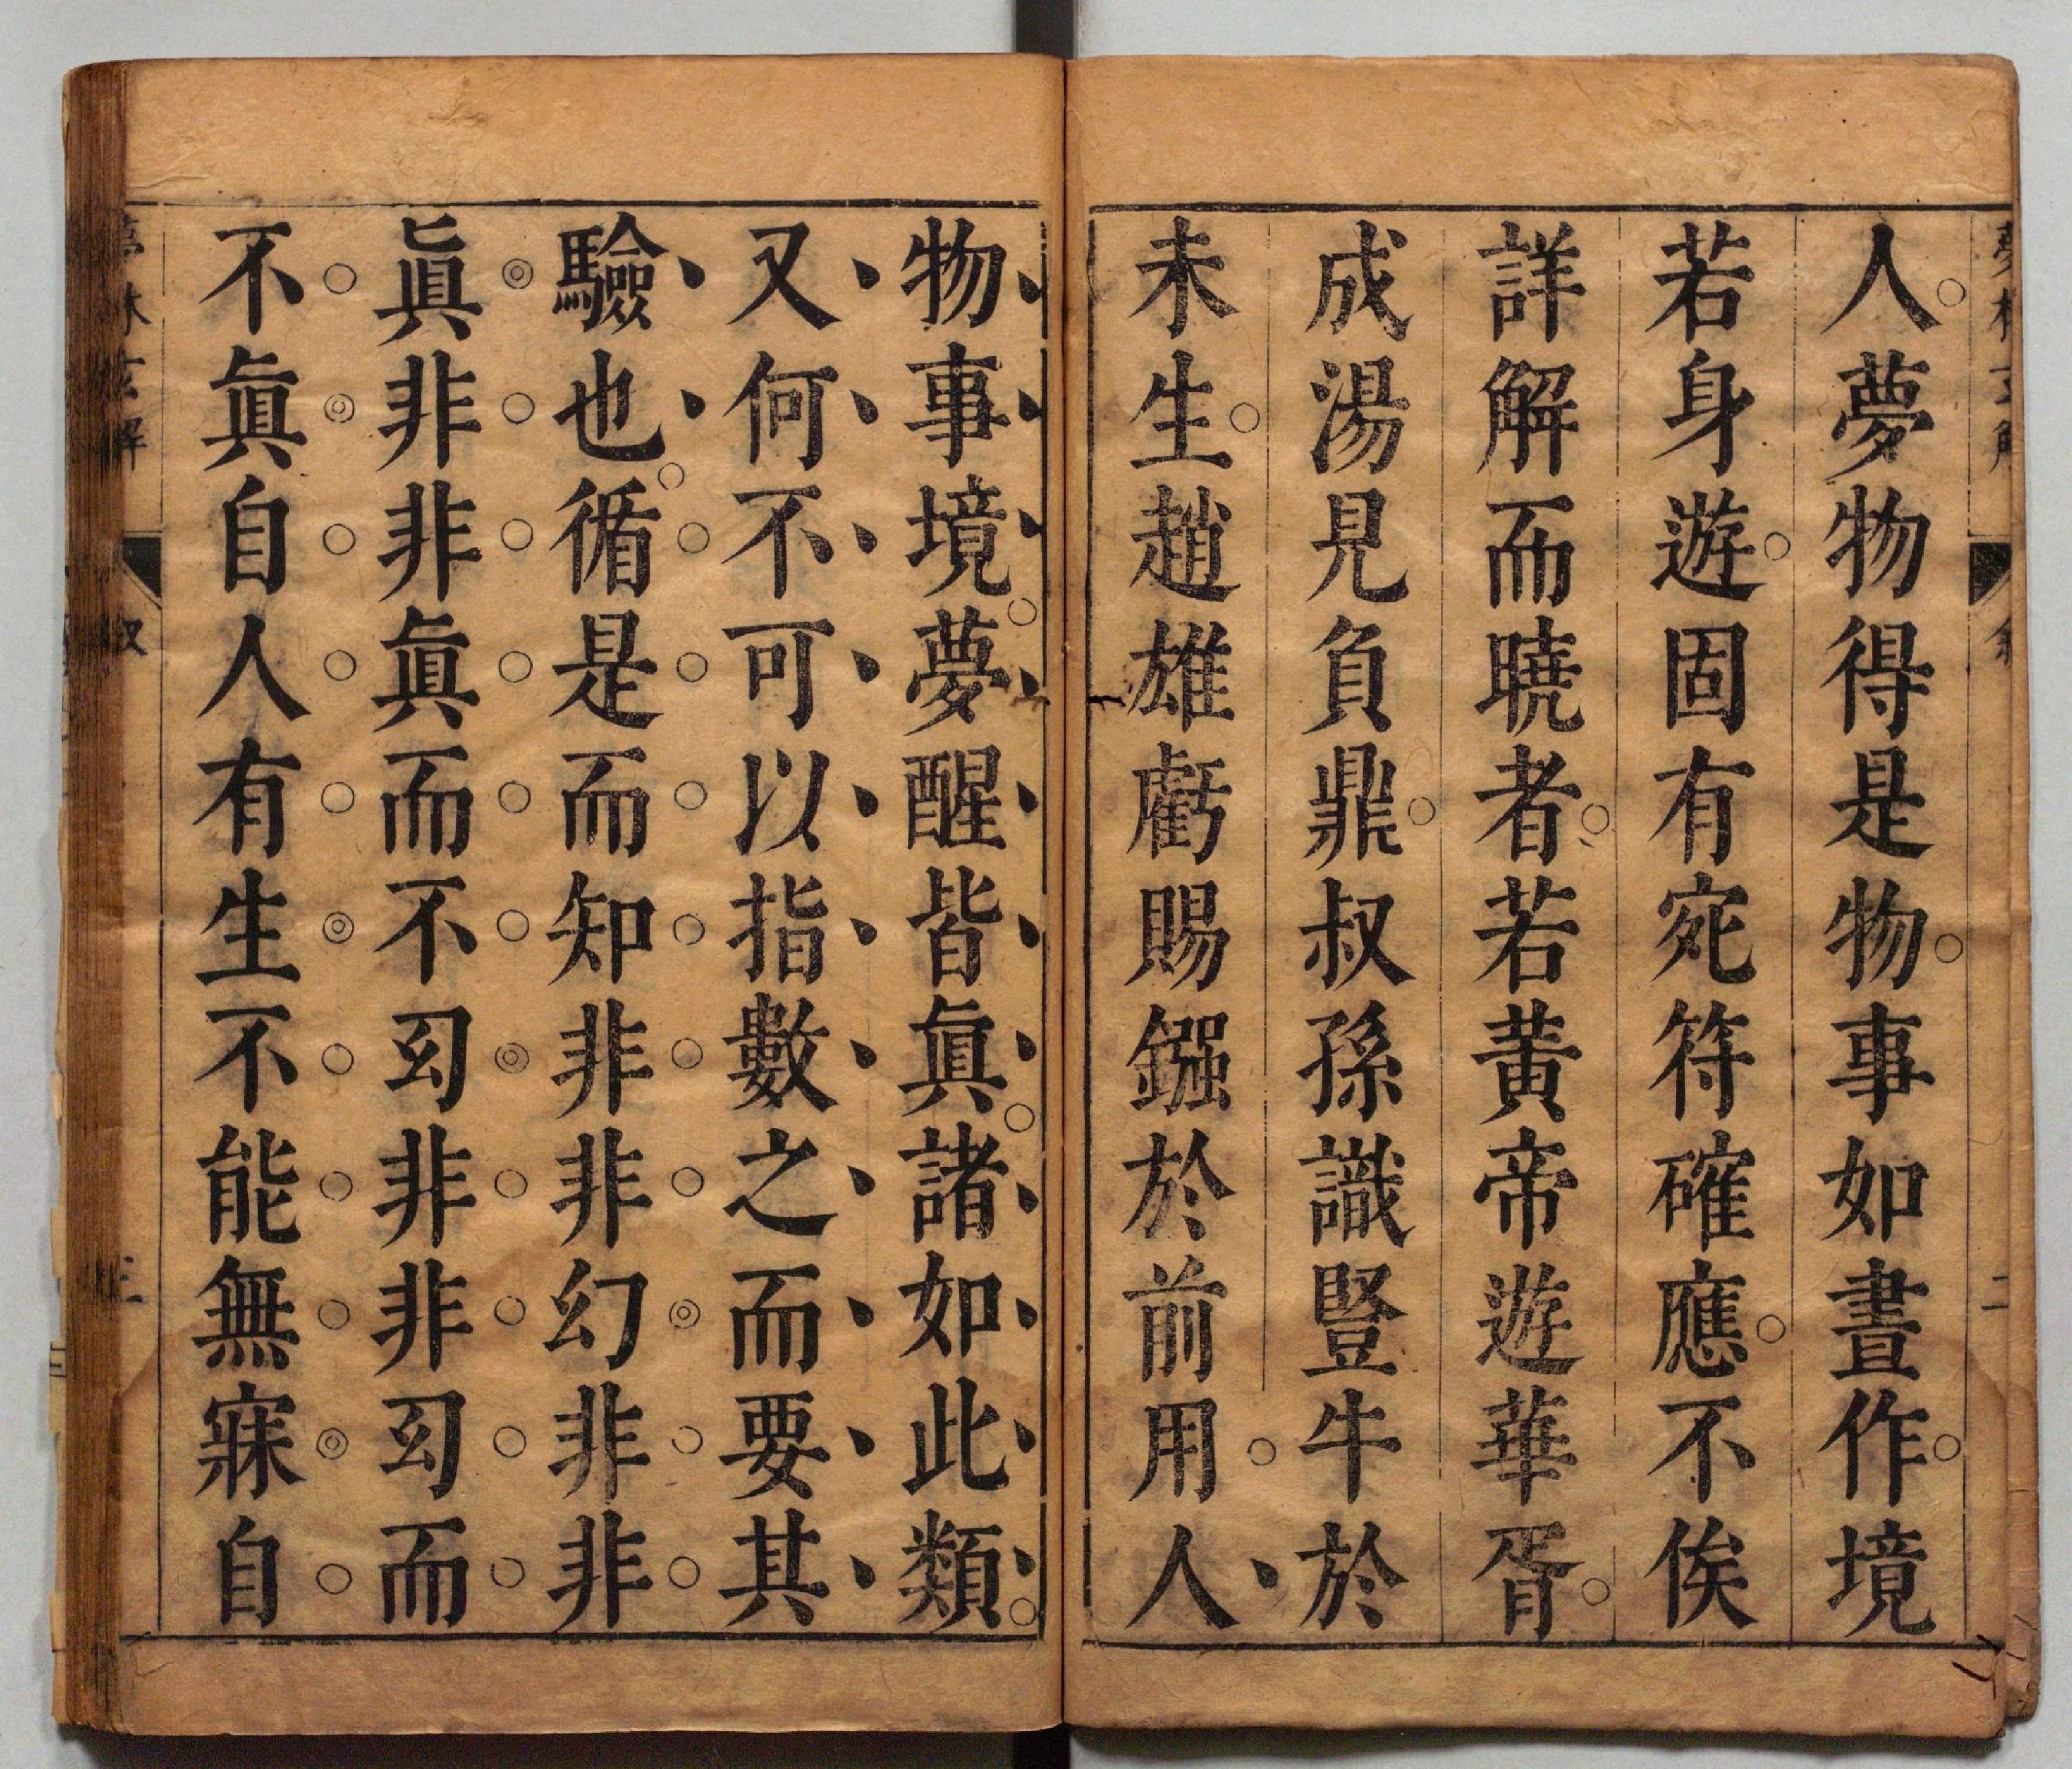 夢林玄解 叙 二
人夢物得是物事如晝作境
若身遊固有宛符確應不俟
詳解而曉者若黃帝遊華胥
成湯見負鼎叔孫識豎牛於
未生趙雄虧賜鏹於前用人
物事境夢醒皆眞諸如此類
又何不可以指數之而要其
驗也循是而知非非幻非非
眞非非眞而不幻非非幻而
不眞自人有生不能無寐自
林玄解 叙 三